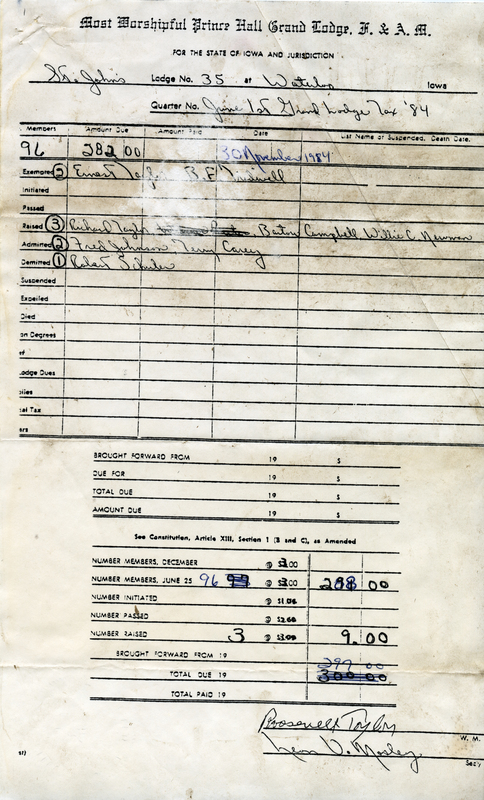 Most Worshipful Prince Hall Grand Lodge, F. & A. M.
FOR THE STATE OF IOWA AND JURISDICTION
St. John's Lodge No. 35 at Waterloo Iowa
Quarter No. June 1st Grand Lodge Tax '84
Members Amount Due Amount Paid Date List Name of Suspended, Death Date.
96 282 00 30 November 1984
Exempted (2) Ernest B. F. Tredwell
Initiated
Passed
Raised (3) Richard Taylor Campbell Willie C. Newman
Admitted (2) Fred Johnson Terry Carey
Demitted (1) Robert Schuler
Suspended
Expelled
Died
on Degrees
of
Lodge Dues
plies
ial Tax
ers
BROUGHT FORWARD FROM 19 $
DUE FOR 19 $
TOTAL DUE 19 $
AMOUNT DUE 19 $
See Constitution, Article XIII, Section 1 (B and C), as Amended
NUMBER MEMBERS, DECEMBER @ $3.00
NUMBER MEMBERS, JUNE 25 96 @ $3.00 288 00
NUMBER INITIATED @ $1.00
NUMBER PASSED @ $2.00
NUMBER RAISED 3 @ $3.00 9.00
BROUGHT FORWARD FROM 19 297 00
TOTAL DUE 19 300 00
TOTAL PAID 19
Roosevelt Taylor W. M.
Leon V. Mosley Sec'y